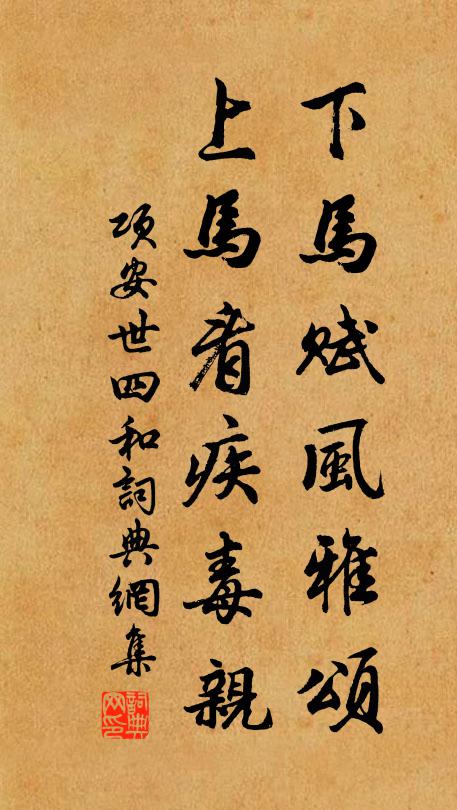 下馬賦風雅頌
上馬看疾毒親
項安世四和詞典網集
詞典網印